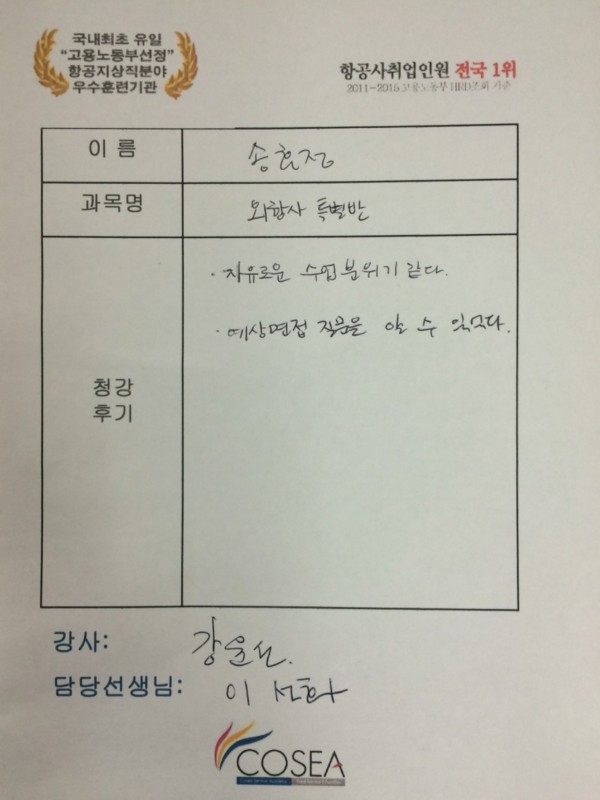 국내최초 유일
“고용노동부선정”
항공지상직분야
우수훈련기관
항공사취업인원 전국 1위
2011-2015 고용노동부 HRD조회 기준
이 름
송효정
과목명
외항사 특별반
청강
후기
· 자유로운 수업분위기 같다.
· 예상면접 질문을 알 수 있었다.
강사: 강윤선.
담당선생님: 이 선화
COSEA